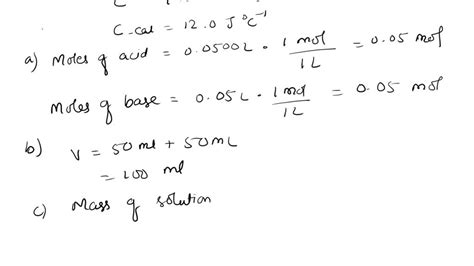 C-cal = 12.0 J°C⁻¹
a) Moles of acid = 0.0500L · 1 mol / 1L = 0.05 mol
Moles of base = 0.05L · 1 mol / 1L = 0.05 mol
b) V = 50 ml + 50 mL
= 100 ml
c) Mass of solution